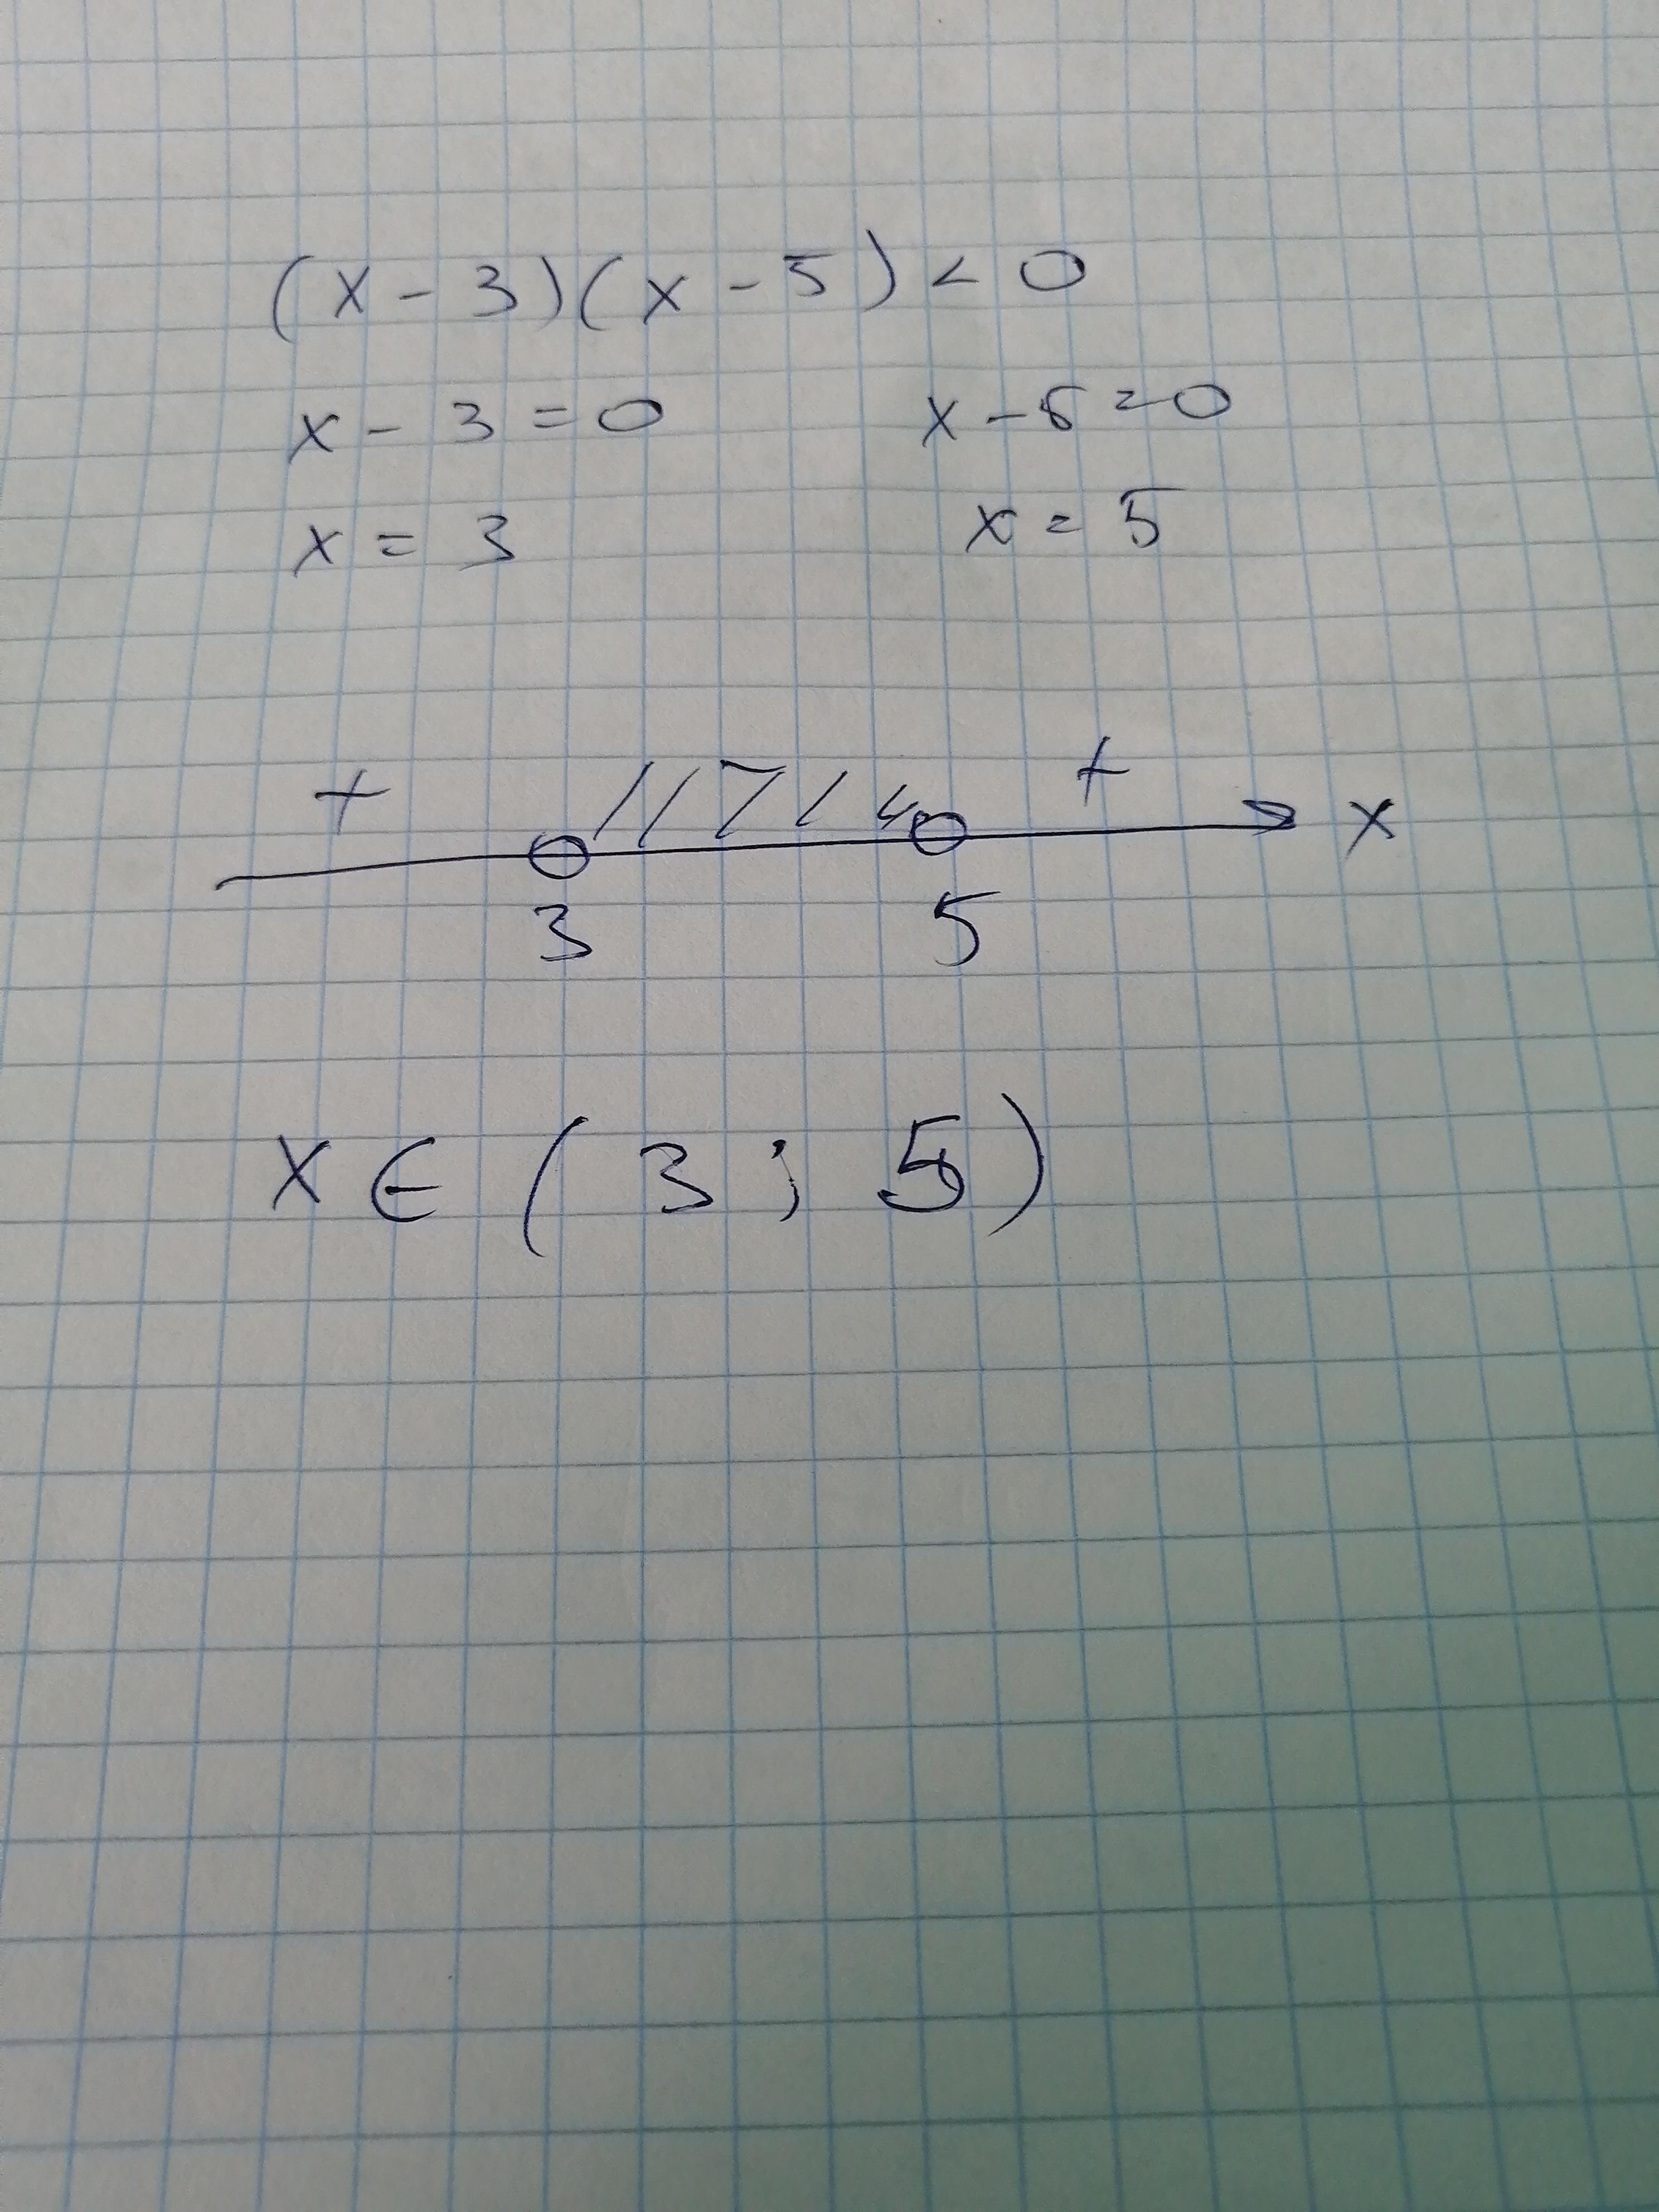 (x - 3)(x - 5) < 0
x - 3 = 0 x - 5 = 0
x = 3 x = 5
+ + x
3 5
x ∈ (3 ; 5)